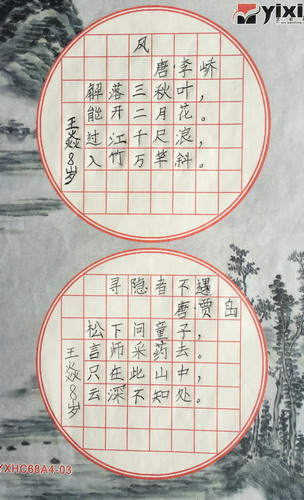 yixi
风
唐·李峤
解落三秋叶，
能开二月花。
过江千尺浪，
入竹万竿斜。
王焱8岁
寻隐者不遇
唐贾岛
松下问童子，
言师采药去。
只在此山中，
云深不知处。
王焱8岁
YXHC68A4-03